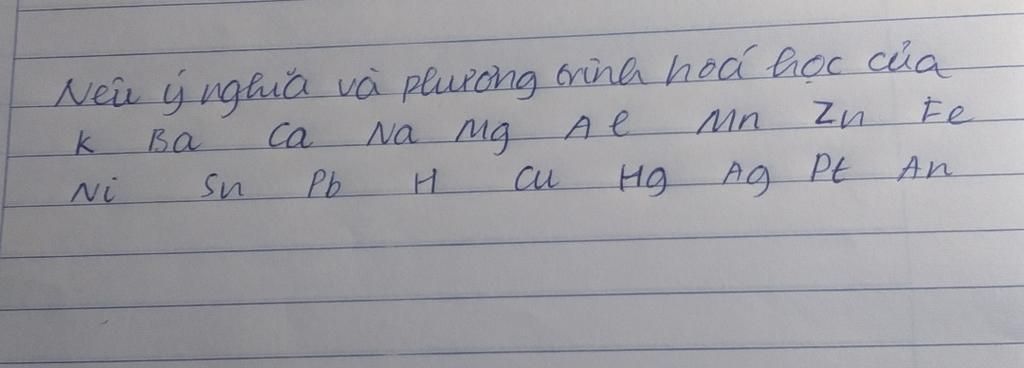 Nêu ý nghĩa và phương trình hoá học của
K Ba Ca Na Mg Al Mn Zn Fe
Ni Sn Pb H Cu Hg Ag Pt An